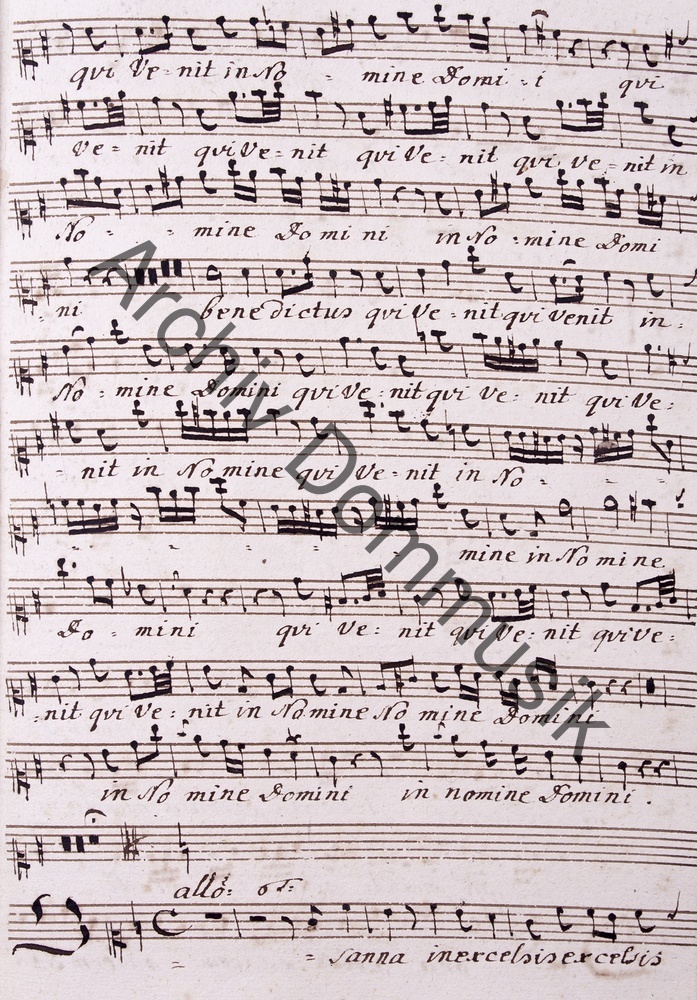 qui Ve = nit in No - mine Domi - i qui
Ve = nit qui Ve = nit qui Ve = nit qui ve = nit in
No = = mine Do mi ni in No = mine Domi
= ni benedictus qui Ve = nit qui venit in =
No = mine Domini qui Ve = nit qui Ve = nit qui Ve =
= nit in No mine qui Ve = nit in No = = =
= = = = mine in No mine
Do = mini qui Ve = nit qui Ve = nit qui Ve =
= nit qui Ve = nit in No mine No mine Domini
in No mine Domini in nomine Domini .
allo:
= = sanna in excelsis excelsis
Archiv Dommusik